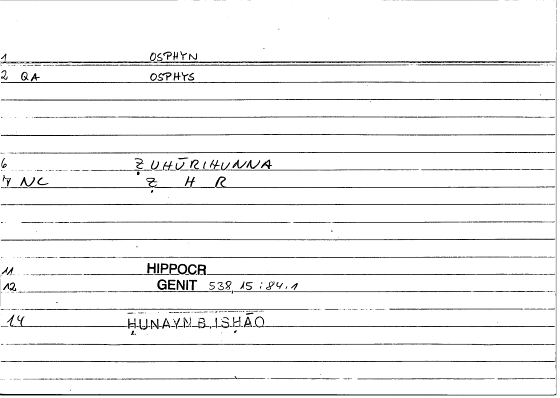 1 OSPHYN
2 QA OSPHYS
6 ẒUHŪRIHUNNA
7 NC Ẓ H R
11 HIPPOCR
12 GENIT 538,15:84.1
14 ḤUNAYN B. ISḤĀQ